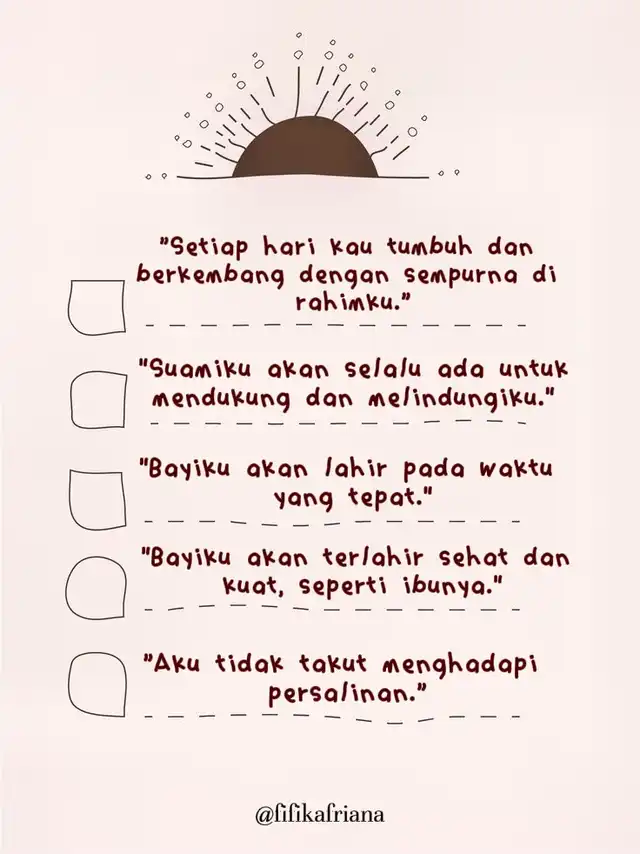 "Setiap hari kau tumbuh dan
berkembang dengan sempurna di
rahimku."
"Suamiku akan selalu ada untuk
mendukung dan melindungiku."
"Bayiku akan lahir pada waktu
yang tepat."
"Bayiku akan terlahir sehat dan
kuat, seperti ibunya."
"Aku tidak takut menghadapi
persalinan."
@fifikafriana